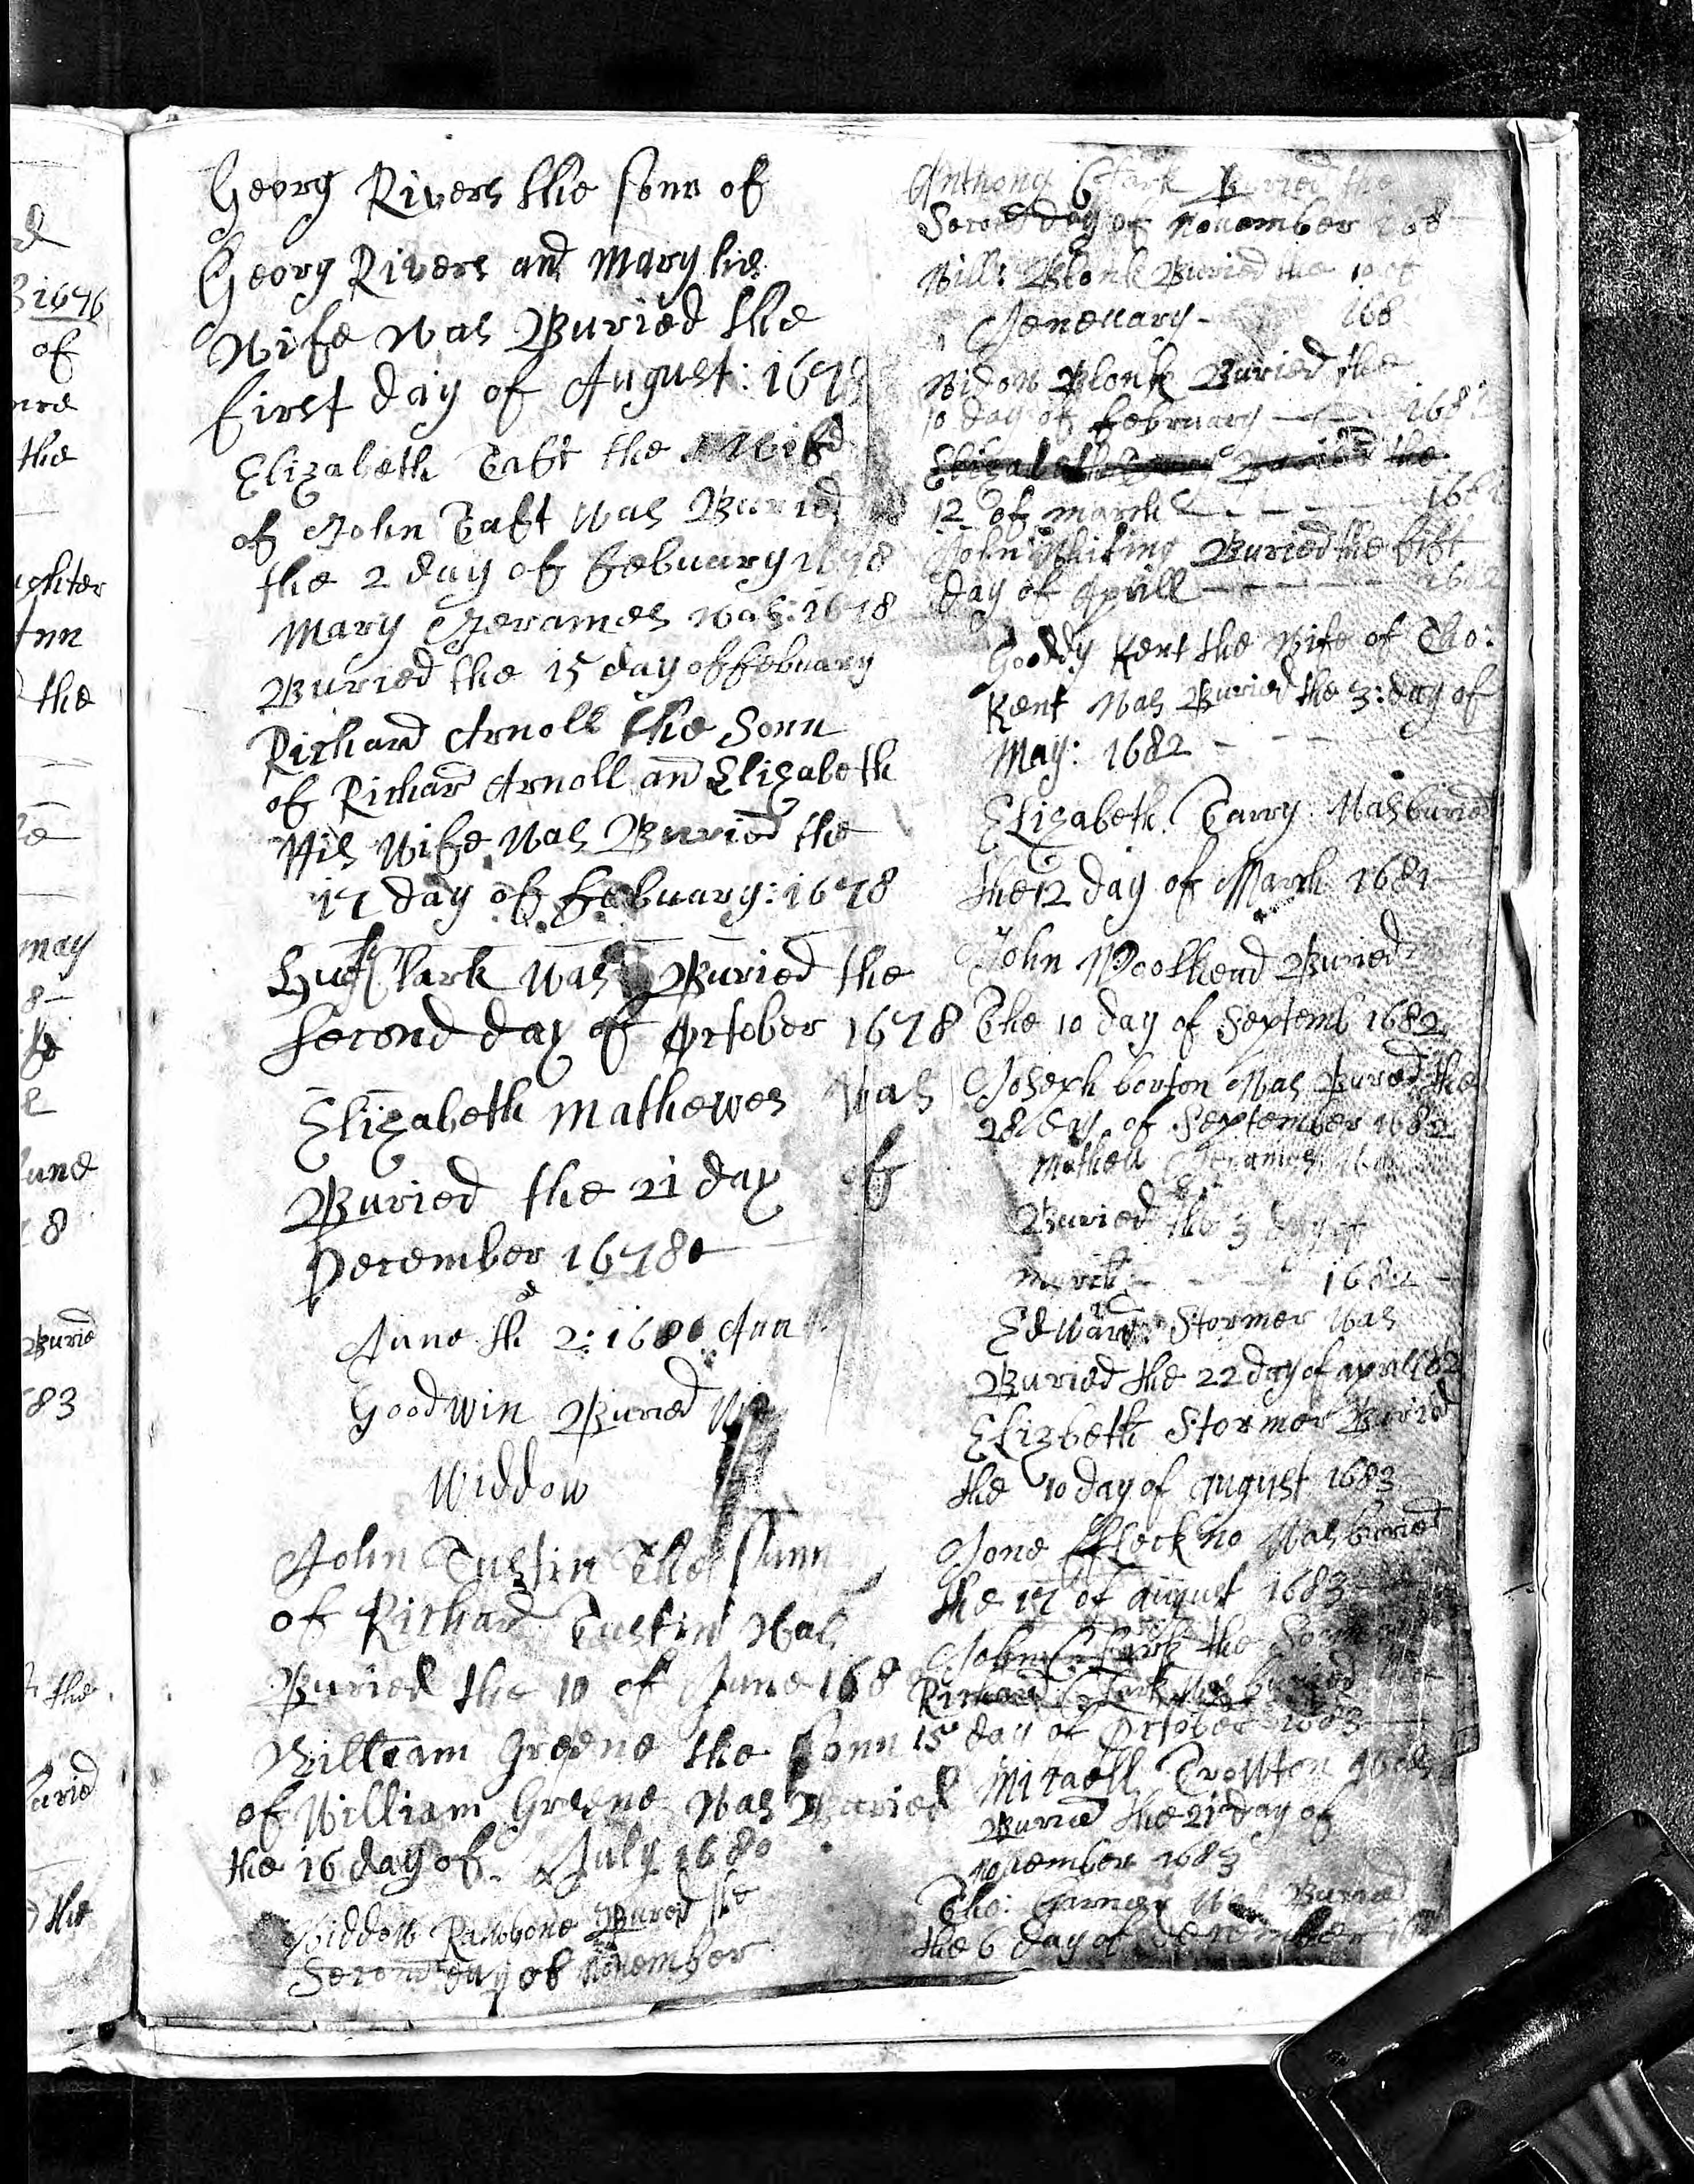 Georg Rivers the sonn of
Georg Rivers and Mary his
Wife Was Buried the
first day of August: 1678
Elizabeth Taft the Wife
of John Taft Was Buried
the 2 day of febuary 1678
Mary Jerames Was: 1678
Buried the 15 day of febuary
Richard Arnoll the Sonn
of Richard Arnoll and Elizabeth
His Wife Was Buried the
17 day of febuary: 1678
Clark Was Buried the
second day of October 1678
Elizabeth Mathewes Was
Buried the 21 day of
December 1678
June th 2: 1680 Ann
Goodwin Buried
Widdow
John Tustin The sunn
of Richard Tustin Was
Buried the 10 of June 168
William Greene the sonn
of William Greene Was Buried
the 16 day of July 1680
Widdow Buried the
Second day of November
Anthony Clark Buried the
Second day of November 168
Will: Blonk Buried the 10 of
Jeneuary - 168
Widow Blonk Buried the
10 day of february 168
Elizabeth Buried the
12 of march
John Whiting Buried the fift
day of Aprill 1682
Gooddy Kent the Wife of Tho:
Kent Was Buried the 3: day of
May: 1682
Elizabeth Tarry Was buried
the 12 day of March 1681
John Woolhead Buried
The 10 day of Septemb 1682
Joseph borton Was Buried the
28 day of September 1682
Mathew Jerames
Buried the 3 day of
1682
Edward Stormer Was
Buried the 22 day of aprill 82
Elizbeth Stormer Buried
the 10 day of August 1683
Jone Was buried
the 17 of august 1683
John Clark the Sonn
Richard Clark Was buried the
15 day of October 1683
Mitaell Trowton Was
Buried the 21 day of
november 1683
Tho: Garner Was Buried
the 6 day of